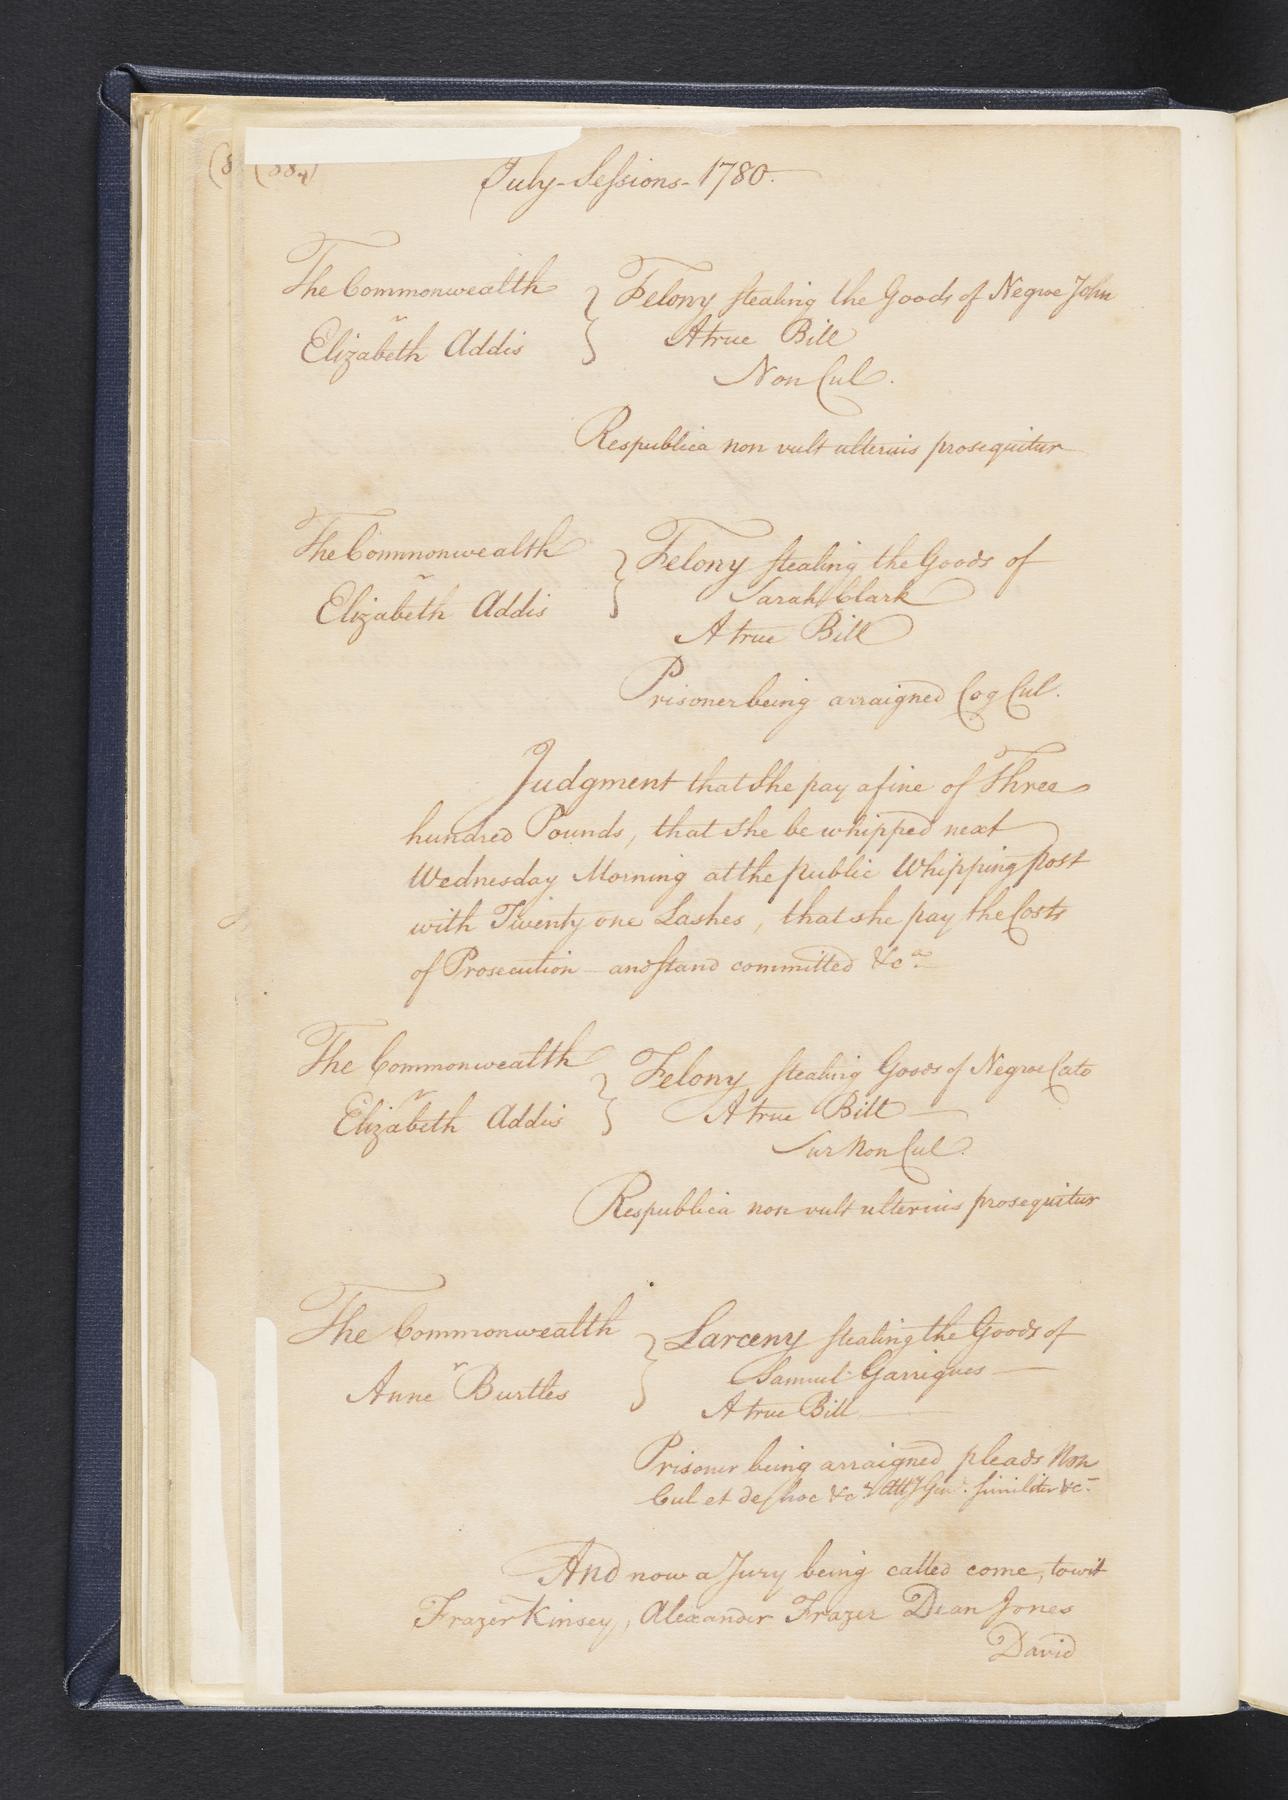 (884)
July-Sessions-1780.
The Commonwealth
v
Elizabeth Addis
Felony stealing the Goods of Negroe John
A true Bill
Non Cul.
Respublica non vult ulterius prosequitur
The Commonwealth
v
Elizabeth Addis
Felony stealing the Goods of
Sarah Clark
A true Bill
Prisoner being arraigned Cog Cul.
Judgment that She pay a fine of Three
hundred Pounds, that She be whipped next
Wednesday Morning at the public Whipping post
with Twenty one Lashes, that she pay the Costs
of Prosecution - and stand committed &ca.
The Commonwealth
v
Elizabeth Addis
Felony stealing Goods of Negroe Cato
A true Bill
Sur Non Cul.
Respublica non vult ulterius prosequitur
The Commonwealth
v
Anne Burtles
Larceny stealing the Goods of
Samuel Garrigues
A true Bill
Prisoner being arraigned pleads Non
Cul et de hoc &c. Atty Gen. similiter &c.
And now a Jury being called come, towit
Frazer Kinsey, Alexander Frazer Dean Jones
David